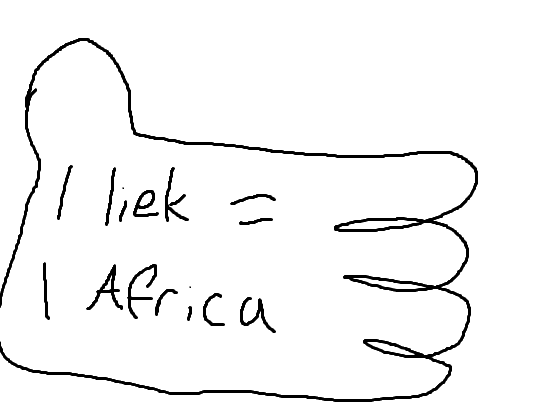 1 liek =
1 Africa